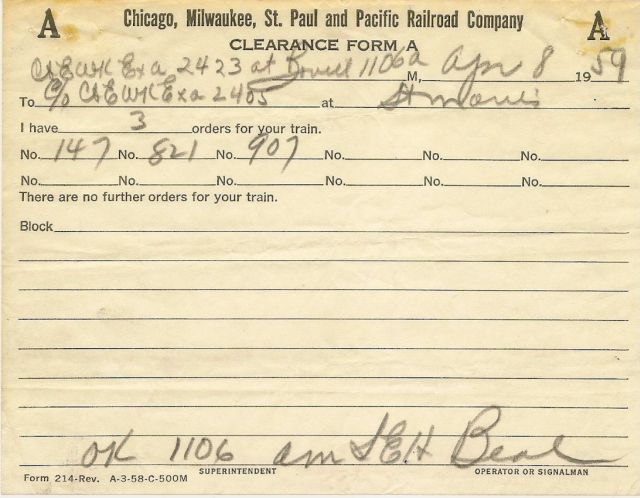 A Chicago, Milwaukee, St. Paul and Pacific Railroad Company A
CLEARANCE FORM A
C&E WK Exa 2423 at Bovill 1106a M, Apr 8 1959
To C&E WK Exa 2405 at St Maries
I have 3 orders for your train.
No. 147 No. 821 No. 907 No. No. No.
No. No. No. No. No. No.
There are no further orders for your train.
Block
OK 1106 am SEH Beal
SUPERINTENDENT OPERATOR OR SIGNALMAN
Form 214-Rev. A-3-58-C-500M